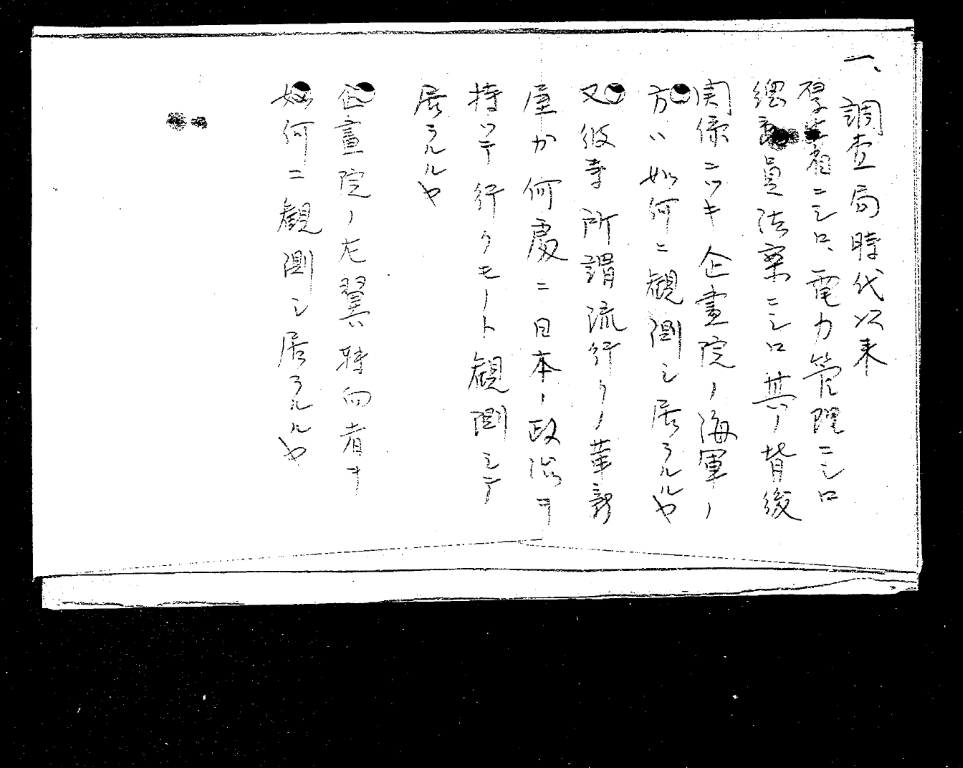 一、調査局時代以来
厚生省ニシロ、電力管理ニシロ
総動員法案ニシロ其ノ背後
関係ニツキ企畫院ノ海軍ノ
方ハ如何ニ観測シ居ラルルヤ
又彼等所謂流行リノ革新
屋カ何處ニ日本ノ政治ヲ
持ツテ行クモノト観測シテ
居ラルルヤ
企畫院ノ左翼轉向者ヲ
如何ニ観測シ居ラルルヤ